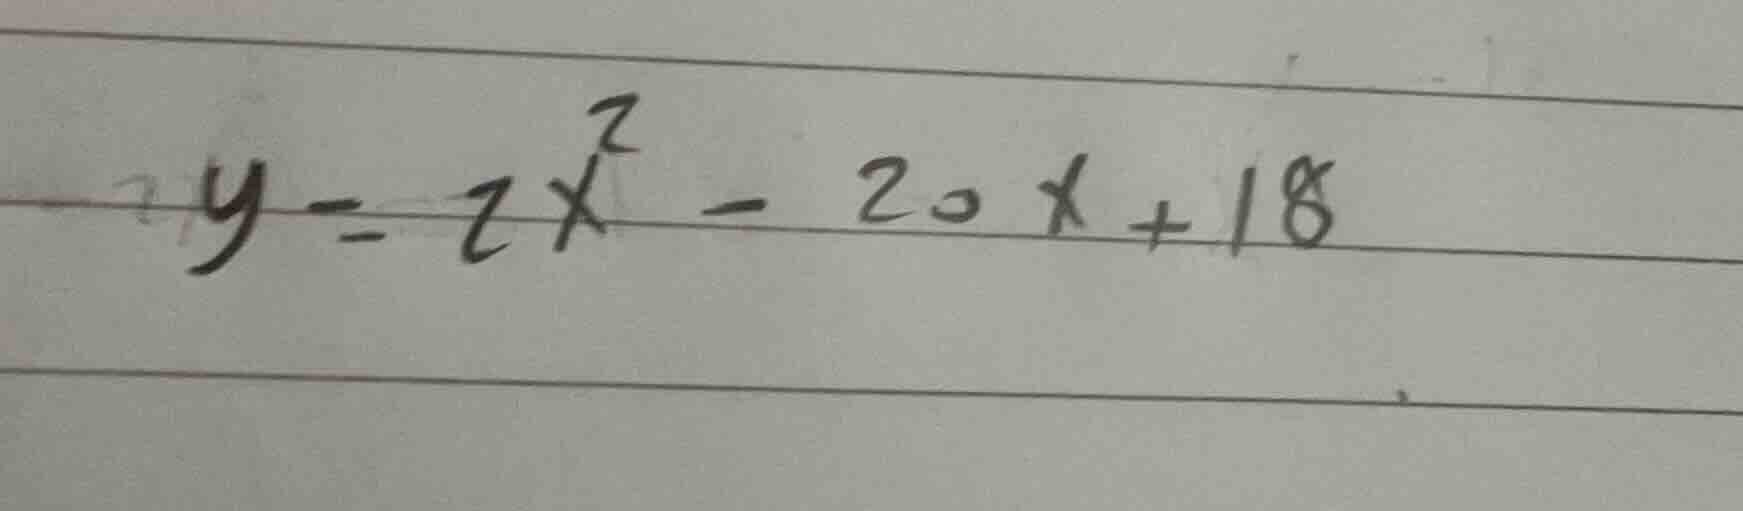 y = 2x² - 20x + 18